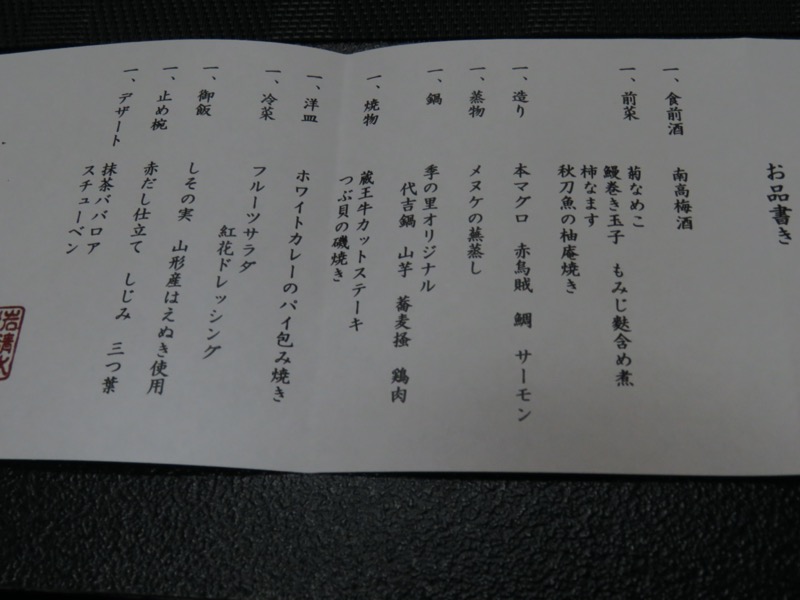 お品書き
一、食前酒　南高梅酒
一、前菜　菊なめこ
鰻巻き玉子　もみじ麩含め煮
柿なます
秋刀魚の柚庵焼き
一、造り　本マグロ　赤烏賊　鯛　サーモン
一、蒸物　メヌケの蕪蒸し
一、鍋　季の里オリジナル
代吉鍋　山芋　蕎麦掻　鶏肉
一、焼物　蔵王牛カットステーキ
つぶ貝の磯焼き
一、洋皿　ホワイトカレーのパイ包み焼き
一、冷菜　フルーツサラダ
紅花ドレッシング
一、御飯　しその実　山形産はえぬき使用
一、止め椀　赤だし仕立て　しじみ　三つ葉
一、デザート　抹茶ババロア
スチューベン
岩清水